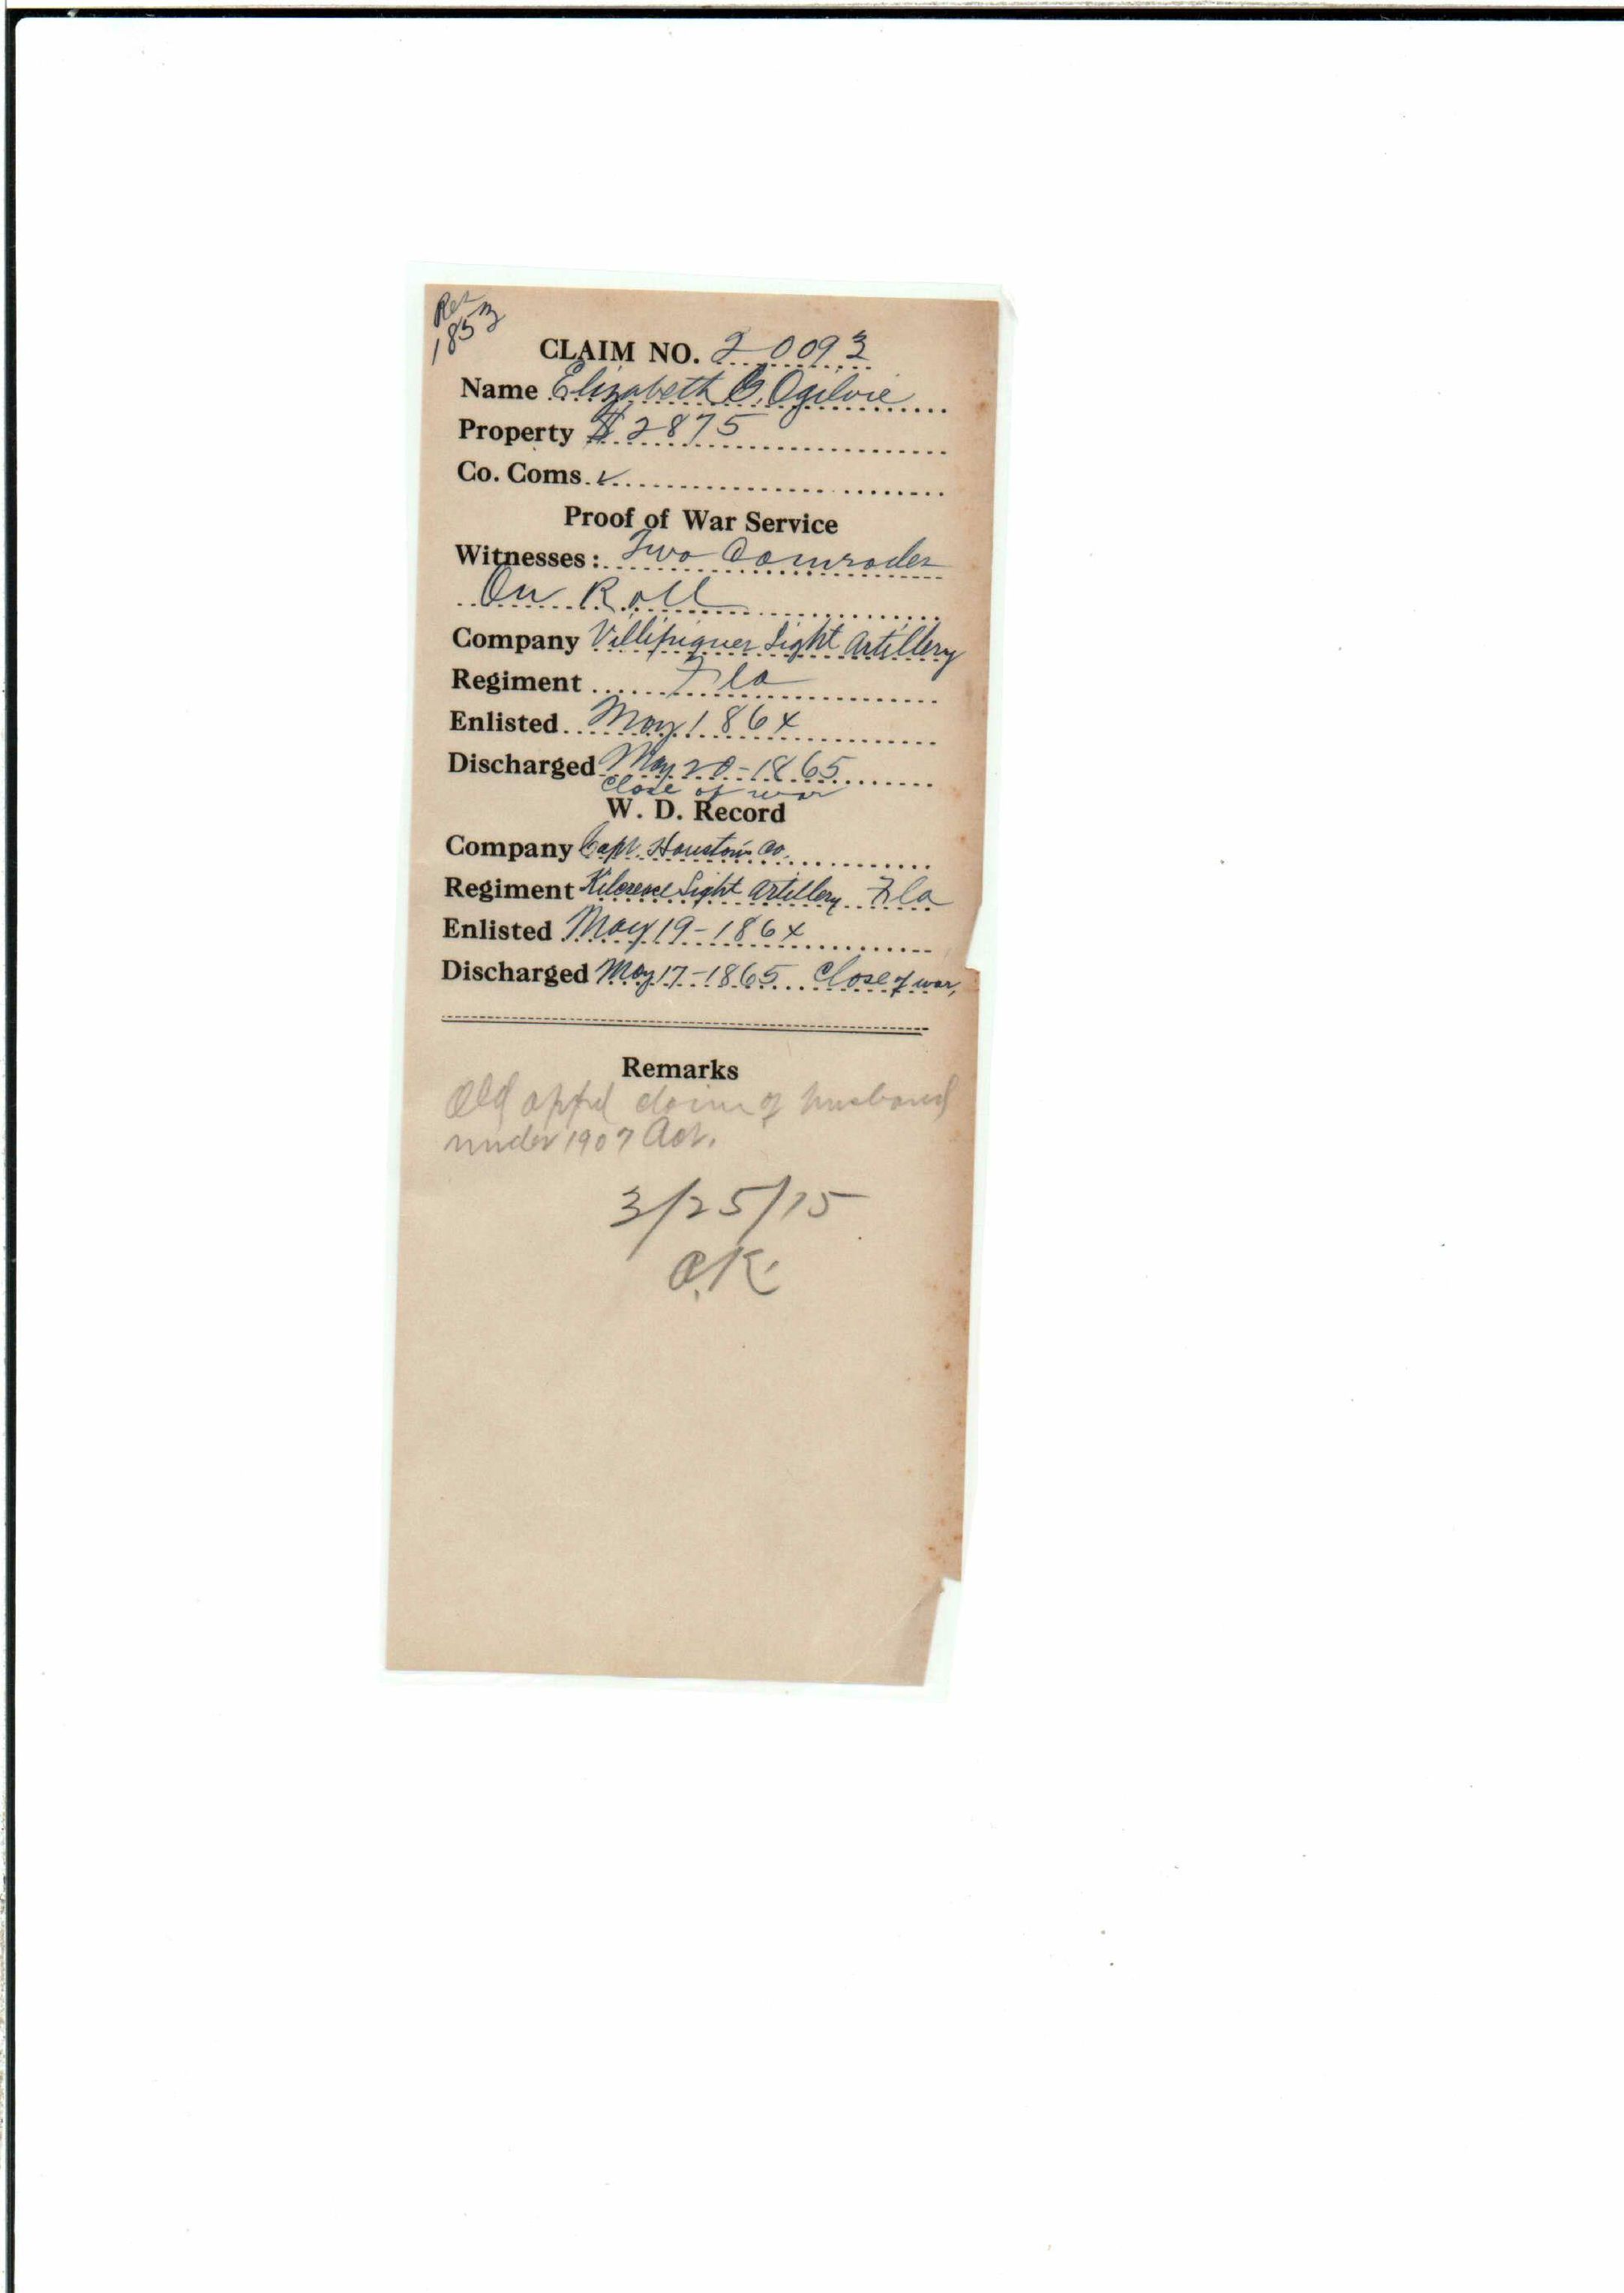 1853
CLAIM NO. 20093
Name Elizabeth Ogilvie
Property $2875
Co. Coms. ✓
Proof of War Service
Witnesses: Two Comrades
On Roll
Company Villipigues Light Artillery
Regiment Fla
Enlisted May 1864
Discharged May 20-1865
Close of war
W. D. Record
Company Capt. Houston's Co.
Regiment Kilcrease Light Artillery Fla
Enlisted May 19-1864
Discharged May 17-1865 Close of war,
Remarks
Old claim of husband
under 1907 Act.
3/25/15
O.K.